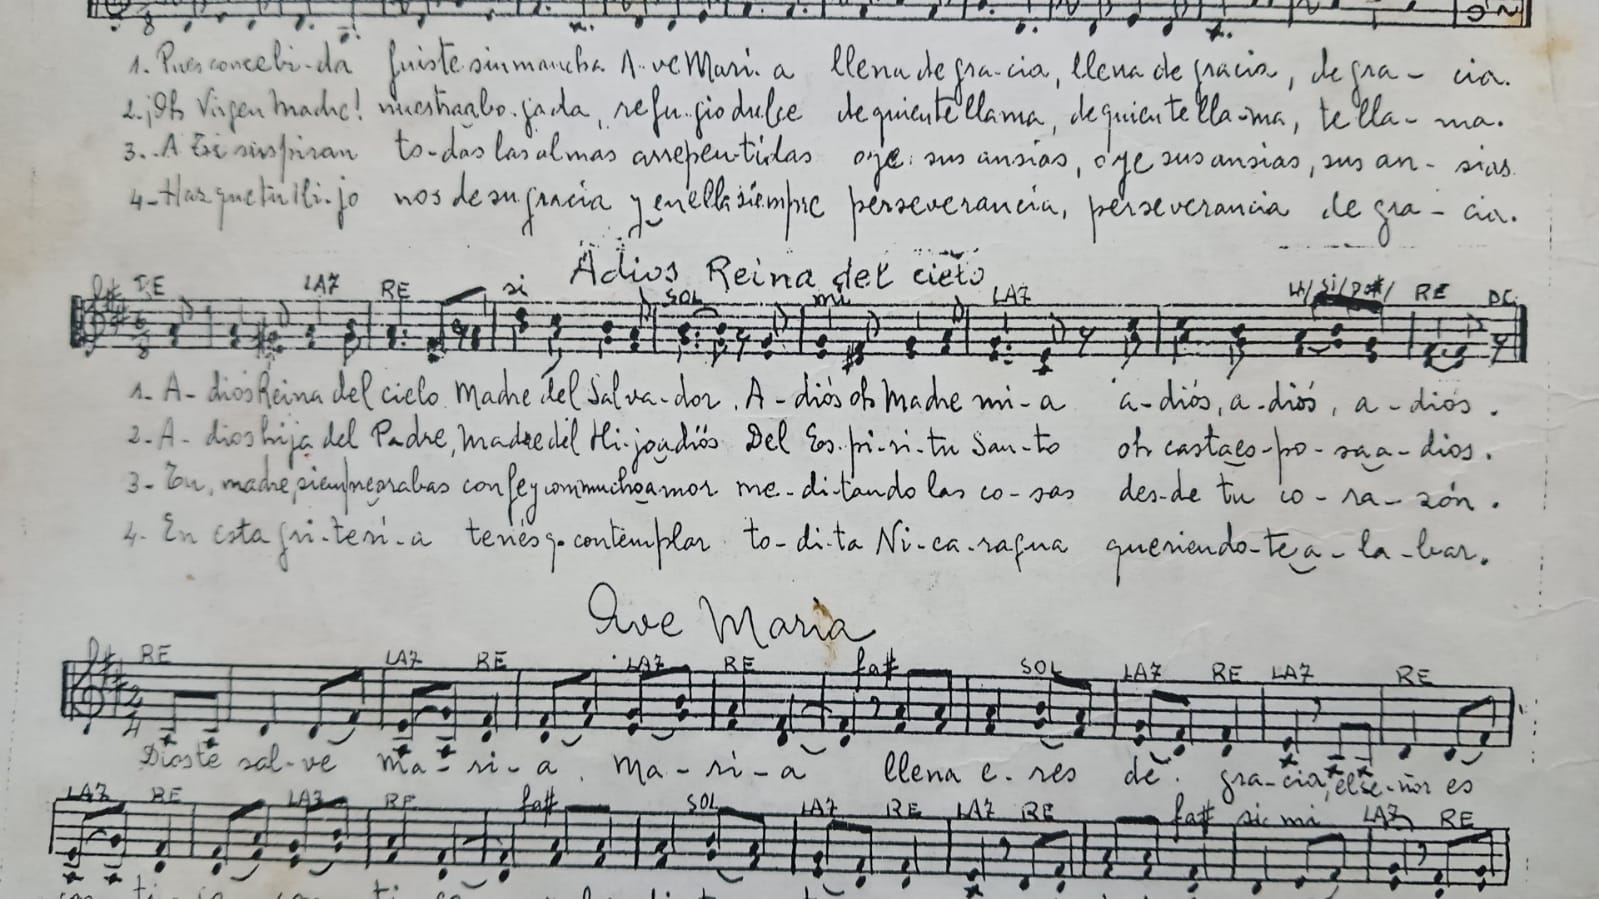 1. Pues concebi-da fuiste sin mancha A-ve Mari-a llena de gra-cia, llena de gracia, de gra-cia.
2. ¡Oh Virgen Madre! nuestra abo-gada, refu-gio dulce de quien te llama, de quien te lla-ma, te lla-ma.
3. A Ti suspiran to-das las almas arrepen-tidas oye sus ansias, oye sus ansias, sus an-sias.
4- Haz que tu Hi-jo nos de su gracia y en ella siempre perseverancia, perseverancia de gra-cia.
Adios Reina del cielo
RE LA7 RE si SOL mi LA7 LA/ Si/ DO#/ RE DC.
6
8
1- A-diós Reina del cielo Madre del Salva-dor. A-diós oh Madre mi-a a-diós, a-diós, a-dios.
2- A-dios hija del Padre, Madre del Hi-jo adiós Del Es-pi-ri-tu San-to oh casta es-po-sa a-dios.
3- Tu, madre, con fe y con mucho amor me-di-tando las co-sas des-de tu co-ra-zón.
4- En esta gri-teri-a tenés q. contemplar to-di-ta Ni-ca-ragua queriendo-te a-la-bar.
Ave Maria
RE LA7 RE LA7 RE fa# SOL LA7 RE LA7 RE
2
4
Dios te sal-ve ma-ri-a. Ma-ri-a llena e-res de gra-cia, el se-ñor es
LA7 RE LA7 RE fa# SOL LA7 RE LA7 RE fa# si mi LA7 RE